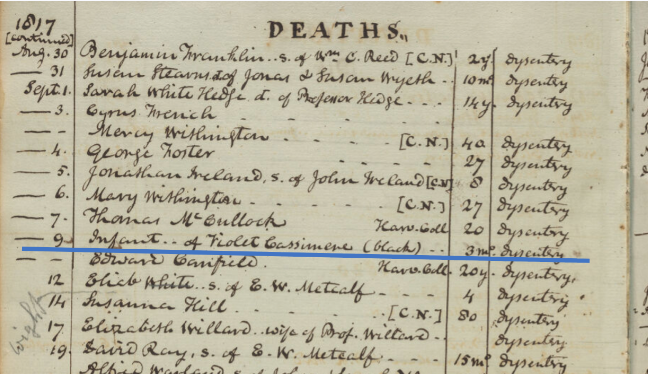 DEATHS.
1817
[continued]
Aug. 30 Benjamin Franklin.. s. of Wm C. Reed [C.N.] 2y dysentery
— 31 Susan Stearns d. of Jonas & Susan Wyeth .. 10 mo. dysentery
Sept. 1. Sarah White Hedge d. of Professor Hedge - - - 14 y. dysentery
— 3. Cyrus French - - - -
— - Mercy Withington - - - [C.N.] 40 dysentery
— 4. George Foster - - - 27 dysentery
— 5. Jonathan Ireland, s. of John Ireland [C.N.] 8 dysentery
— 6. Mary Withington - - - [C.N.] 27 dysentery
— 7. Thomas McCullock Harv. Coll 20 dysentery
— 9. Infant .. of Violet Cassimere (black) - . 3 mo. dysentery
— - Edward Canfield. Harv. Coll. 20 y. dysentery.
12 Eliab White.. s. of E. W. Metcalf - - - 4 dysentery
14 Susanna Hill - - - [C.N.] 80 dysentery
17 Elizabeth Willard.. wife of Prof. Willard .. dysentery
19. David Ray, s. of E. W. Metcalf - - - 15 mo. dysentery
Alfred